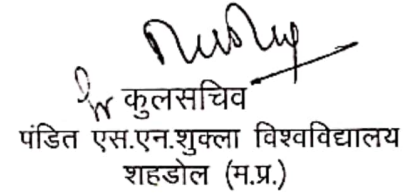 कुलसचिव
पंडित एस.एन.शुक्ला विश्वविद्यालय
शहडोल (म.प्र.)